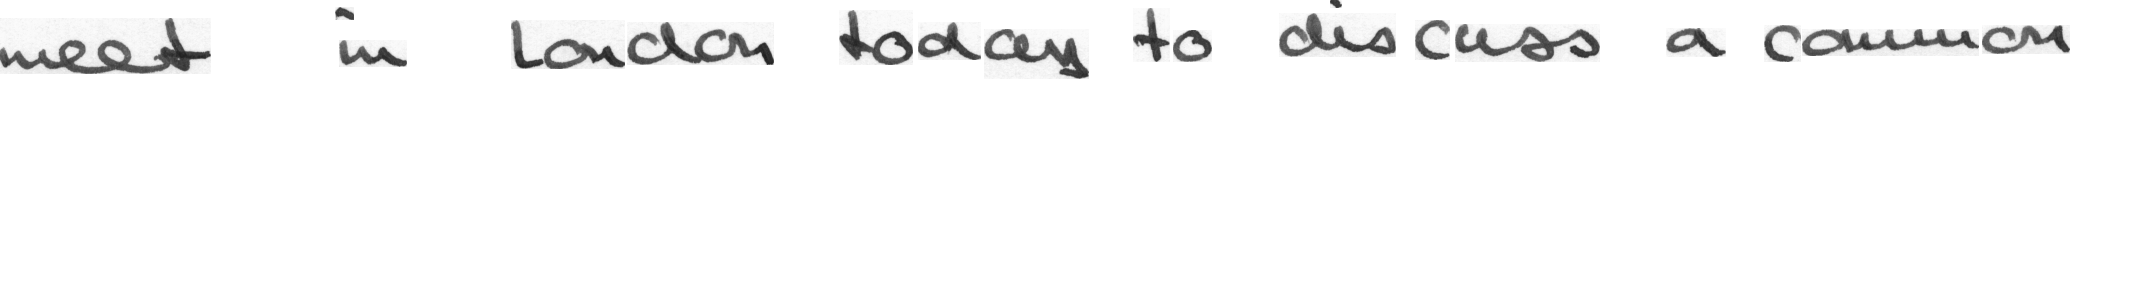 meet in London today to discuss a common